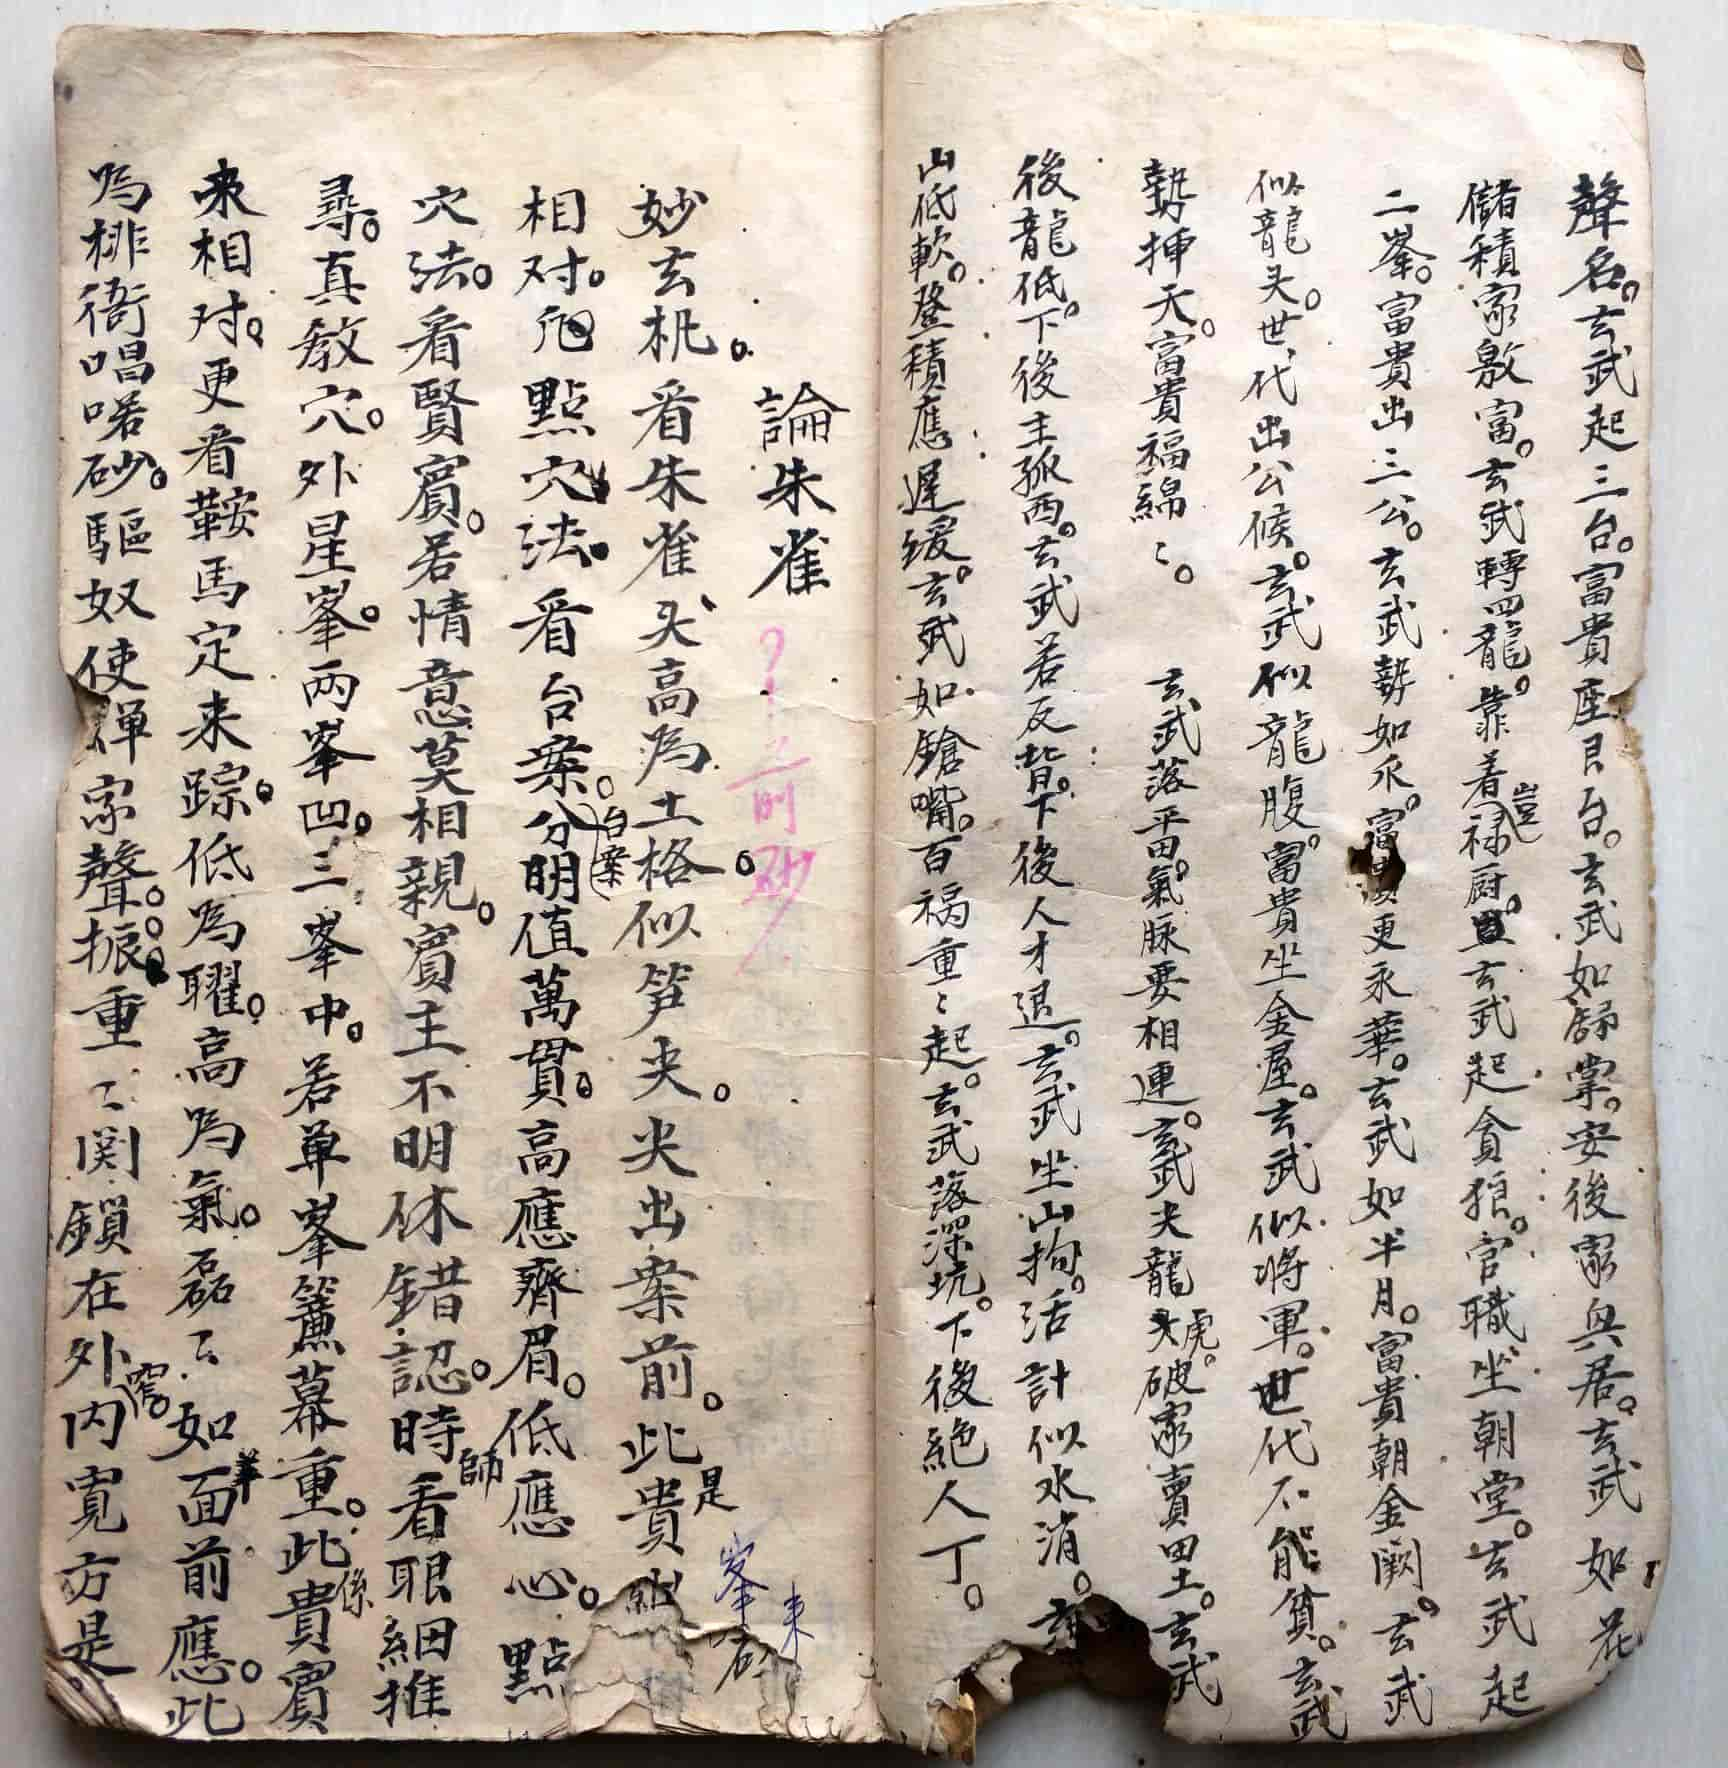 聲名。玄武起三台。富貴座艮台。玄武如歸掌。安後家與居。玄武如花
儲積家敷富。玄武轉四龍。靠着禄厨。豈玄武起貪狼。官職坐朝堂。玄武起
二峯。富貴出三公。玄武勢如永。富貴更永華。玄武如半月。富貴朝金闕。玄武
似龍头。世代出公候。玄武似龍腹。富貴坐金屋。玄武似将軍。世代不能貧。玄武
勢揷天。富貴福綿〻。 玄武落平田。氣脉要相連。玄武尖龍虎。破家賣田土。玄武
後龍低。下後主孤西。玄武若反背。下後人才退。玄武坐山拘。活計似水消。玄
山低軟。登積應遲缓。玄武如鎗嘴。百禍重〻起。玄武落深坑。下後絕人丁。
論朱雀 ？前砂
妙玄机。看朱雀头高為土格。似笋尖。尖出案前。此是貴
峯 来
相对。點穴法。看台案。台案分明值萬貫。高應齊眉。低應心。點
穴法。看賢賓。若情意莫相親。賓主不明休錯認。時師看眼細推
尋。真教穴。外星峯。兩峯凹。三峯中。若单峯簾幕重。此係貴賓
来相对。更看鞍馬定来踪。低為曜。高為氣。磊〻如面前應。此
為排衙唱喏砂。驅奴使婢家聲。振重〻関鎖在外内寬方是